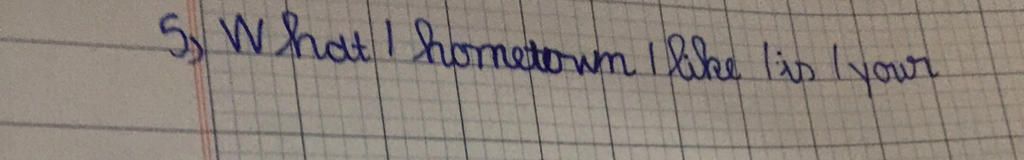 5) What / hometown / like / is / your